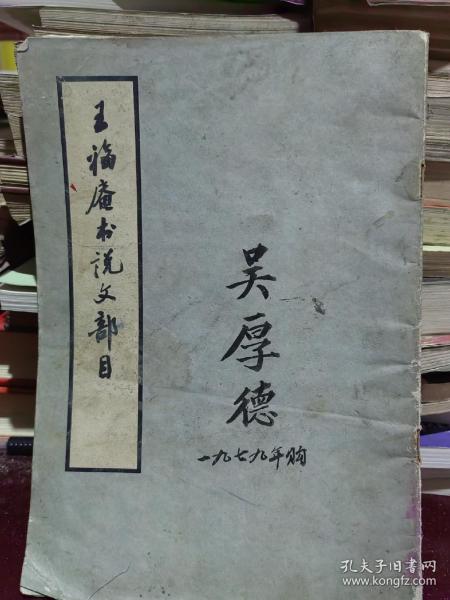 王福庵书说文部目
吴厚德
一九七九年购
孔夫子旧书网
www.kongfz.com